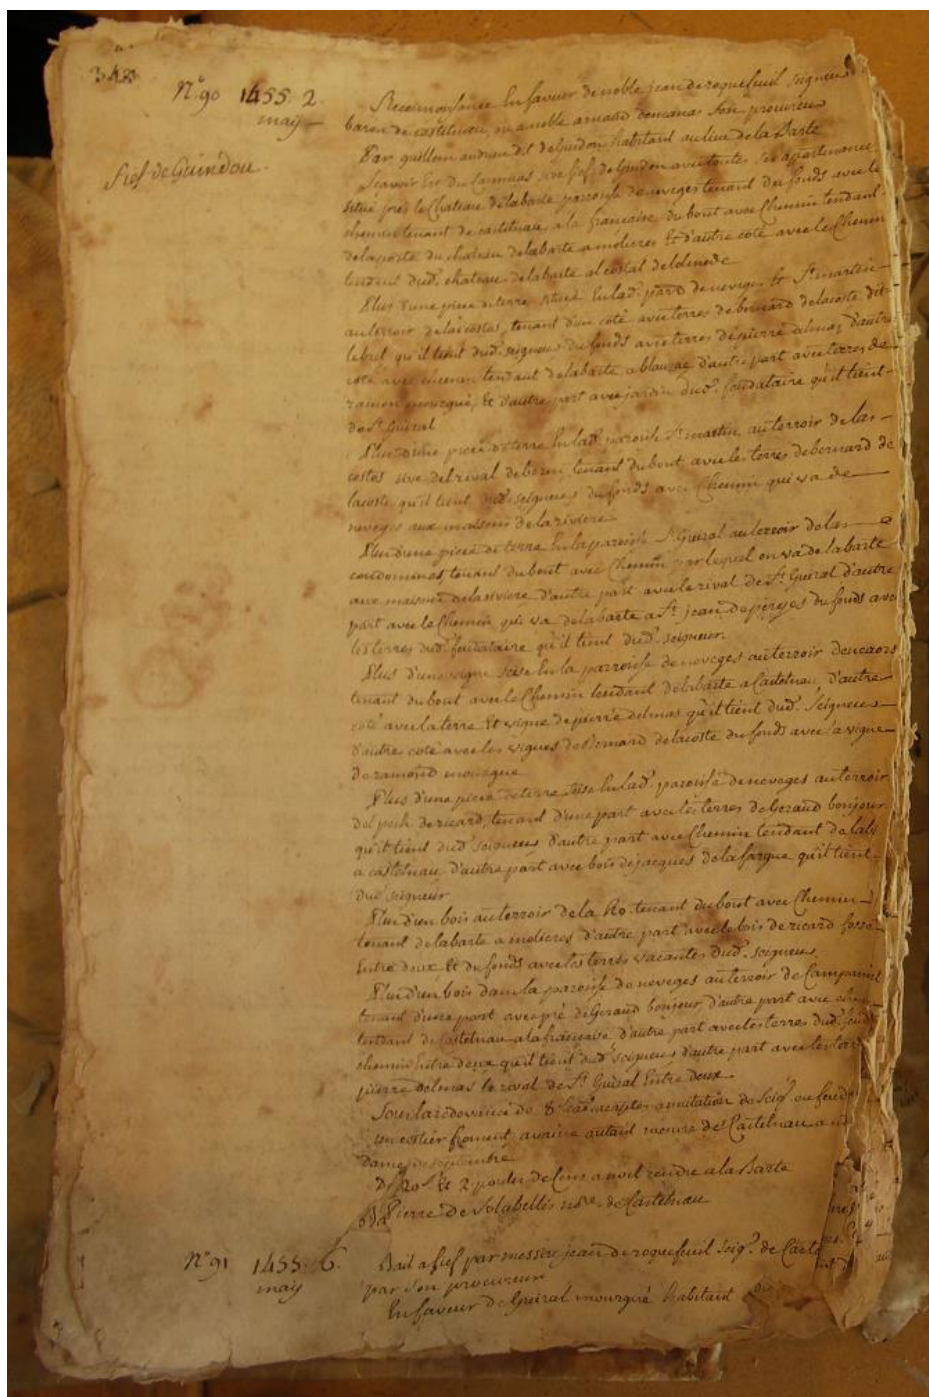 348
N° 90 1455. 2.
may
fief de Guindou.
Reconnoissance En faveur de noble jean de roquefeuil seigneur
baron de castelnau, ma noble arnaud son procureur
Par guillem andrieu dit de Guidon habitant au lieu de la Barte
Scavoir Est du sive fief de Guidon avec toutes ses apartenances
situé pres le Chateau de labarte parroisse de neveges tenant du fonds avec le
chemin tenant de castelnau a la francaise du bout avec Chemin tendant
de la porte du chateau de labarte a molieres Et d'autre coté avec le Chemin
tendant dud. chateau de labarte al costal de
Plus d'une piece de terre située En lad. par. de neveges Et St. martin
au terroir de las costes, tenant d'un coté avec terres de bernard de lacoste dit
qu'il tient dud. seigneur du fonds avec terres de pierre delmas, d'autre
coté avec chemin tendant de labarte a d'autre part avec terres de
ramon mourguié, Et d'autre part avec jardin dud. feudataire qu'il tient
de St. Guiral
Plus d'une piece de terre En lad. paroisse St. martin au terroir de las
costes sive del rival de tenant du bout avec les terres de bernard de
lacoste qu'il tient dud. seigneur du fonds avec Chemin qui va de
neveges aux maisons de la riviere
Plus d'une piece de terre En la paroisse St. Guiral au terroir de las
condomines, tenant du bout avec Chemin par lequel on va de labarte
aux maisons de la riviere d'autre part avec le rival de St. Guiral d'autre
part avec le Chemin qui va de labarte a St. jean de du fonds avec
les terres dud. feudataire qu'il tient dud. seigneur.
Plus d'une vigne scise En la parroisse de neveges au terroir
tenant du bout avec le Chemin tendant de labarte a Castelnau, d'autre
coté avec la terre Et vigne de pierre delmas qu'il tient dud. Seigneur
d'autre coté avec les vignes de Bernard de lacoste du fonds avec la vigne
de ramond mourgue
Plus d'une piece de terre scise En lad. paroisse de neveges au terroir
del pech de ricard, tenant d'une part avec les terres de Geraud bonjour
qu'il tient dud. seigneur d'autre part avec Chemin tendant de
a castelnau d'autre part avec bois de jacques de lafargue qu'il tient
dud. seigneur
Plus d'un bois au terroir de la Ro. tenant du bout avec Chemin
tenant de labarte a molieres d'autre part avec le bois de ricard fossé
Entre deux Et du fonds avec les terres vacantes dud. seigneur
Plus d'un bois dans la paroisse de neveges au terroir de
tenant d'une part avec pré de Geraud bonjour, d'autre part avec
tendant de Castelnau a la francaise d'autre part avec les terres dud.
chemin Entre deux qu'il tient dud. seigneur d'autre part avec
pierre delmas le rival de St. Guiral Entre deux
Sous la redevance de 8 acaptes a mutation de Seigr. ou
un cestier froment, avoine autant mesure de Castelnau a
Dame de septembre
20 s. Et 2 poules de Cens a noel rendre a la Barte
Pierre de Solabelles nore. de Castelnau
N° 91 1455. 6.
may
Bail a fief par messire jean de roquefeuil seigr. de
par son procureur
En faveur de Guiral mourguié habitant